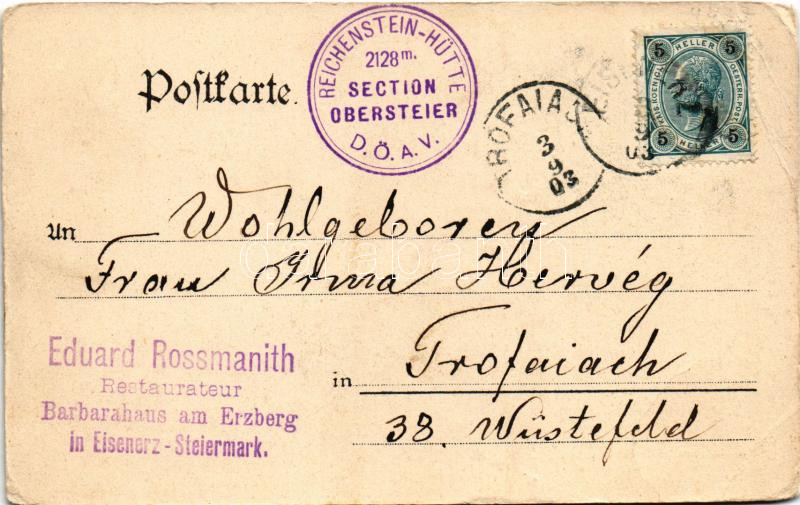 Postkarte.
REICHENSTEIN-HÜTTE
2128 m.
SECTION
OBERSTEIER
D.Ö.A.V.
TROFAIAC
3
9
03
5 HELLER 5
KAIS. KOENIGL. OESTERR. POST.
5 HELLER 5
An Wohlgeboren
Frau Irma Hervég
in Trofaiach
38. Wüstefeld
Eduard Rossmanith
Restaurateur
Barbarahaus am Erzberg
in Eisenerz-Steiermark.
darabanth